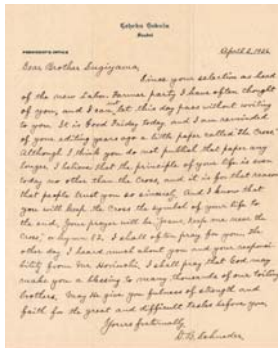 Tohoku Gakuin
Sendai
PRESIDENT'S OFFICE
April 2, 1926
Dear Brother Sugiyama,
Since your selection as head
of the new Labor-Farmer party I have often thought
of you, and I can not let this day pass without writing
to you. It is Good Friday today, and I am reminded
of your editing years ago a little paper called the "Cross,"
although I think you do not publish that paper any
longer. I believe that the principle of your life is even
today no other than the Cross, and it is for that reason
that people trust you so sincerely. And I know that
you will keep the Cross the symbol of your life to
the end. Your prayer will be "Jesus, keep me near the
Cross," or hymn I shall often pray for you. The
other day I heard much about you and your responsi-
bility from Mr. I shall pray that God may
make you a blessing to many thousands of our toiling
brothers. May He give you fulness of strength and
faith for the great and difficult tasks before you.
Yours fraternally,
D. B. Schneder.